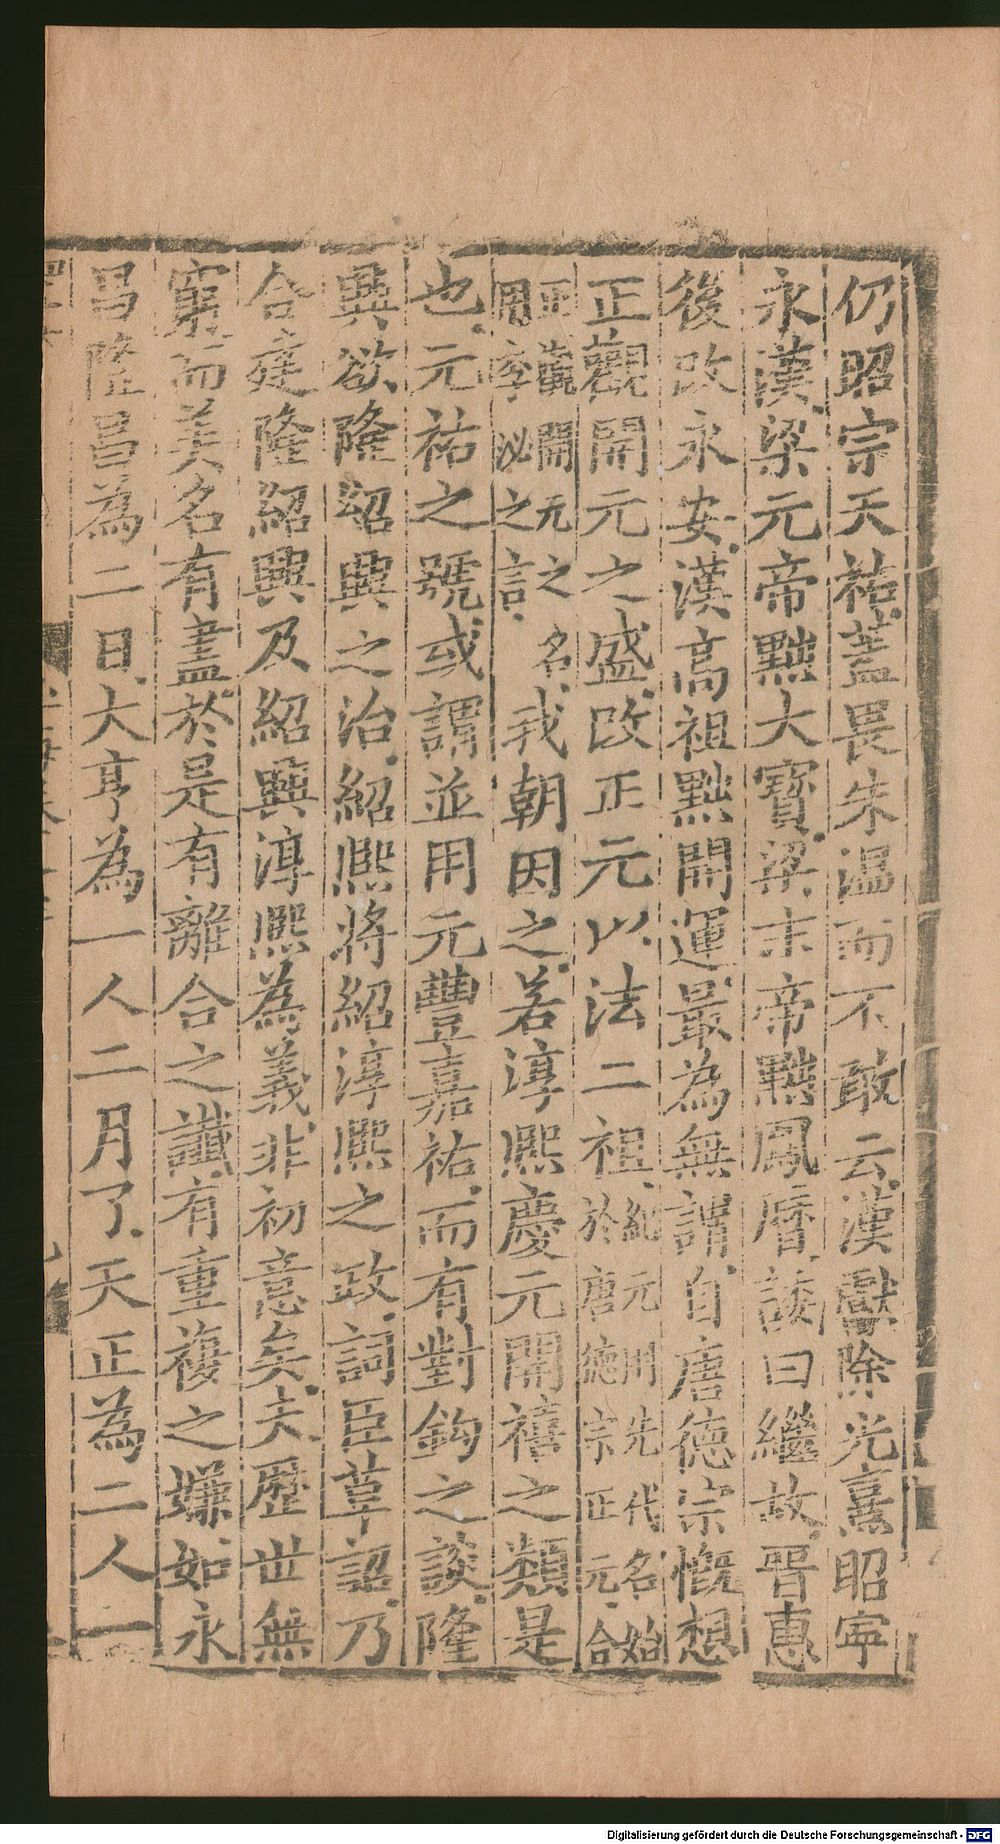 仍昭宗天祐蓋畏朱温而不敢云漢獻除光熹昭寜
永漢梁元帝黜大寳梁末帝黜鳳曆諉曰繼故晋惠
後改永安漢高祖黜開運最為無謂自唐德宗慨想
正觀開元之盛改正元以法二祖紀元用先代名始
於唐德宗正元合
正觀開元之名
用李泌之言我朝因之若淳熙慶元開禧之類是
也元祐之號或謂並用元豐嘉祐而有對鈎之談隆
興欲隆紹興之治紹熙将紹淳熙之政詞臣草詔乃
合建隆紹興及紹興淳熙為義非初意矣夫歷世無
窮而美名有盡於是有離合之讖有重複之嫌如永
昌隆昌為二日大亨為一人二月了天正為二人一
Digitalisierung gefördert durch die Deutsche Forschungsgemeinschaft - DFG